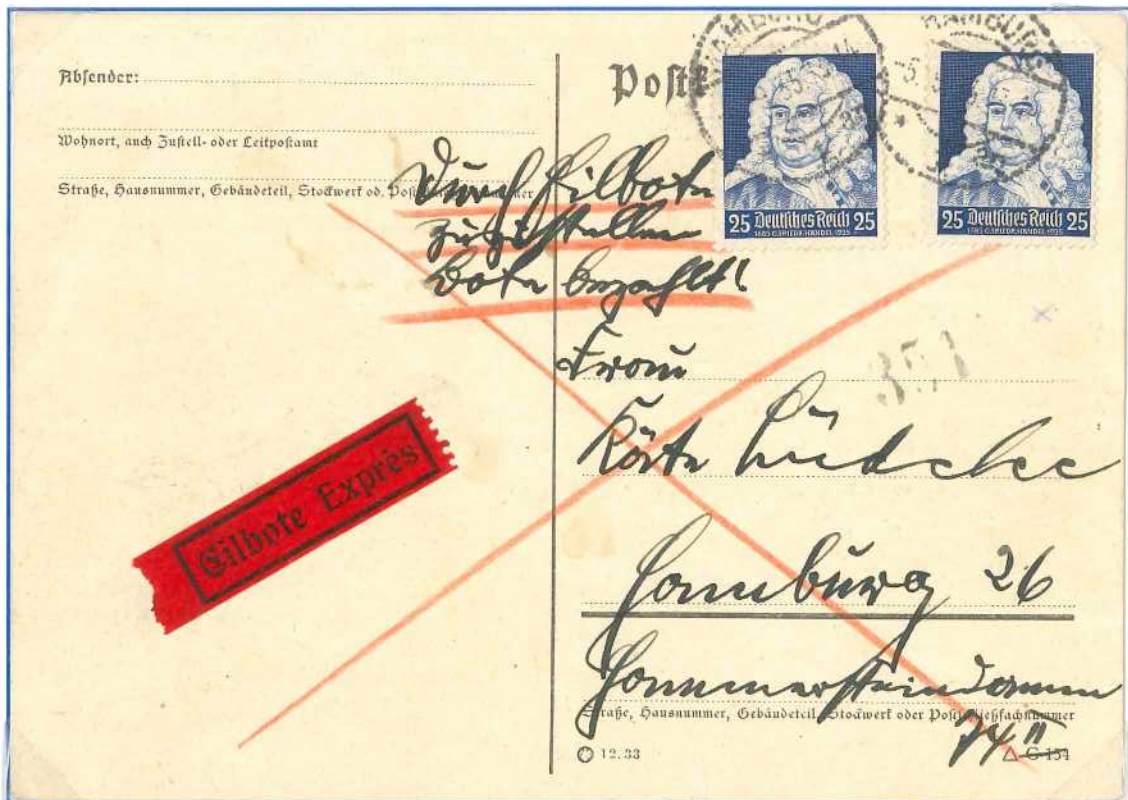 Absender:
Wohnort, auch Zustell- oder Leitpostamt
Straße, Hausnummer, Gebäudeteil, Stockwerk od.
Postk
HAMBURG
HAMBURG
25 Deutsches Reich 25
1685 G.FRIEDR.HÄNDEL 1935
25 Deutsches Reich 25
1685 G.FRIEDR.HÄNDEL 1935
Durch Eilbote
zuzustellen
Bote bezahlt!
Frau
Käte Lüdcke
Hamburg 26
Hammersteindamm
Straße, Hausnummer, Gebäudeteil, Stockwerk oder Postschließfachnummer
II
Eilbote Exprès
12.33
C 154